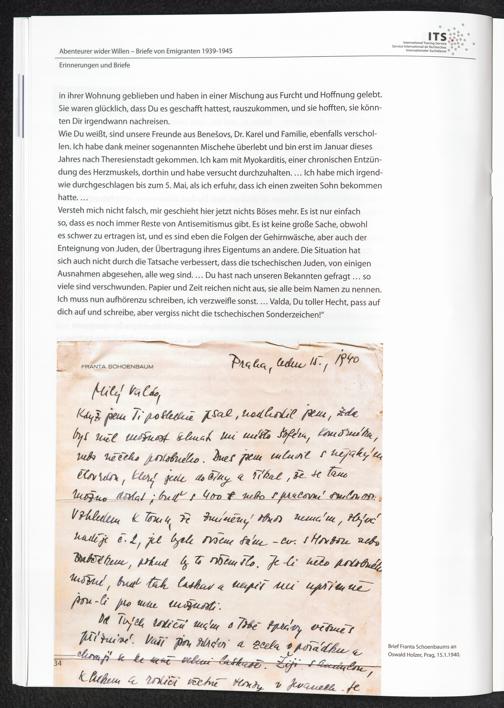 Abenteurer wider Willen – Briefe von Emigranten 1939-1945
ITS
International Tracing Service
Service International de Recherches
Internationaler Suchdienst
Erinnerungen und Briefe
in ihrer Wohnung geblieben und haben in einer Mischung aus Furcht und Hoffnung gelebt.
Sie waren glücklich, dass Du es geschafft hattest, rauszukommen, und sie hofften, sie könn-
ten Dir irgendwann nachreisen.
Wie Du weißt, sind unsere Freunde aus Benešovs, Dr. Karel und Familie, ebenfalls verschol-
len. Ich habe dank meiner sogenannten Mischehe überlebt und bin erst im Januar dieses
Jahres nach Theresienstadt gekommen. Ich kam mit Myokarditis, einer chronischen Entzün-
dung des Herzmuskels, dorthin und habe versucht durchzuhalten. … Ich habe mich irgend-
wie durchgeschlagen bis zum 5. Mai, als ich erfuhr, dass ich einen zweiten Sohn bekommen
hatte. …
Versteh mich nicht falsch, mir geschieht hier jetzt nichts Böses mehr. Es ist nur einfach
so, dass es noch immer Reste von Antisemitismus gibt. Es ist keine große Sache, obwohl
es schwer zu ertragen ist, und es sind eben die Folgen der Gehirnwäsche, aber auch der
Enteignung von Juden, der Übertragung ihres Eigentums an andere. Die Situation hat
sich auch nicht durch die Tatsache verbessert, dass die tschechischen Juden, von einigen
Ausnahmen abgesehen, alle weg sind. … Du hast nach unseren Bekannten gefragt … so
viele sind verschwunden. Papier und Zeit reichen nicht aus, sie alle beim Namen zu nennen.
Ich muss nun aufhören zu schreiben, ich verzweifle sonst. … Valda, Du toller Hecht, pass auf
dich auf und schreibe, aber vergiss nicht die tschechischen Sonderzeichen!"
FRANTA SCHOENBAUM
Praha, leden 15., 1940
Milý Valdo,
Když jsem Ti posledně psal, nadhodil jsem, zda
bys měl možnost sehnat mi místo šoféra, komorníka,
nebo něčeho podobného. Dnes jsem mluvil s nějakým
člověkem, který jede do Číny a říkal, že se tam
možno dostat, buď s 400 nebo s pracovní smlouvou.
Vzhledem k tomu, že zmíněný obnos nemám, zbývá
naděje č. 2, jel bych ovšem sám - ev. s Honzou nebo
pokud by to ovšem šlo. Je-li něco podobného
možné, buď tak laskav a napiš mi upřímně
jsou-li pro mne možnosti.
Od Tvých rodičů mám o Tobě zprávy většinou
příznivé. Vaši jsou zdrávi a zcela v pořádku a
chovají se ke mně velmi laskavě. Žiji s
a rodiči včetně Honzy v se
34
Brief Franta Schoenbaums an
Oswald Holzer, Prag, 15.1.1940.